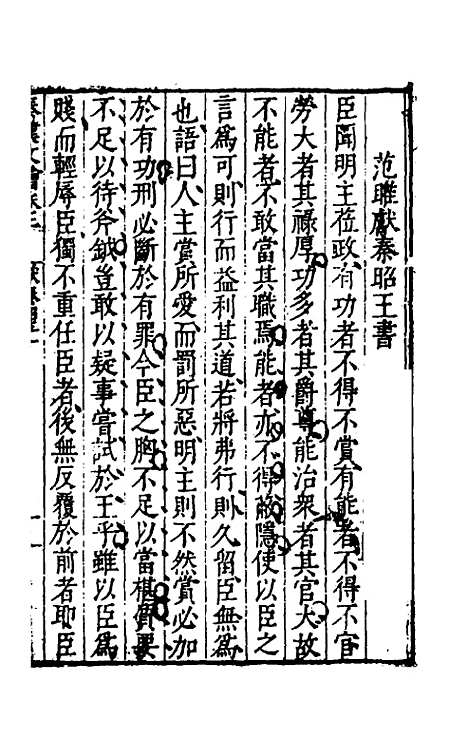 范雎獻秦昭王書
臣聞明主蒞政有功者不得不賞有能者不得不官
勞大者其祿厚功多者其爵尊能治衆者其官大故
不能者不敢當其職焉能者亦不得蔽隱使以臣之
言爲可則行而益利其道若將弗行則久留臣無爲
也語曰人主賞所愛而罰所惡明主則不然賞必加
於有功刑必斷於有罪今臣之胸不足以當椹質要
不足以待斧鉞豈敢以疑事嘗試於王乎雖以臣爲
賤而輕辱臣獨不重任臣者後無反覆於前者耶臣